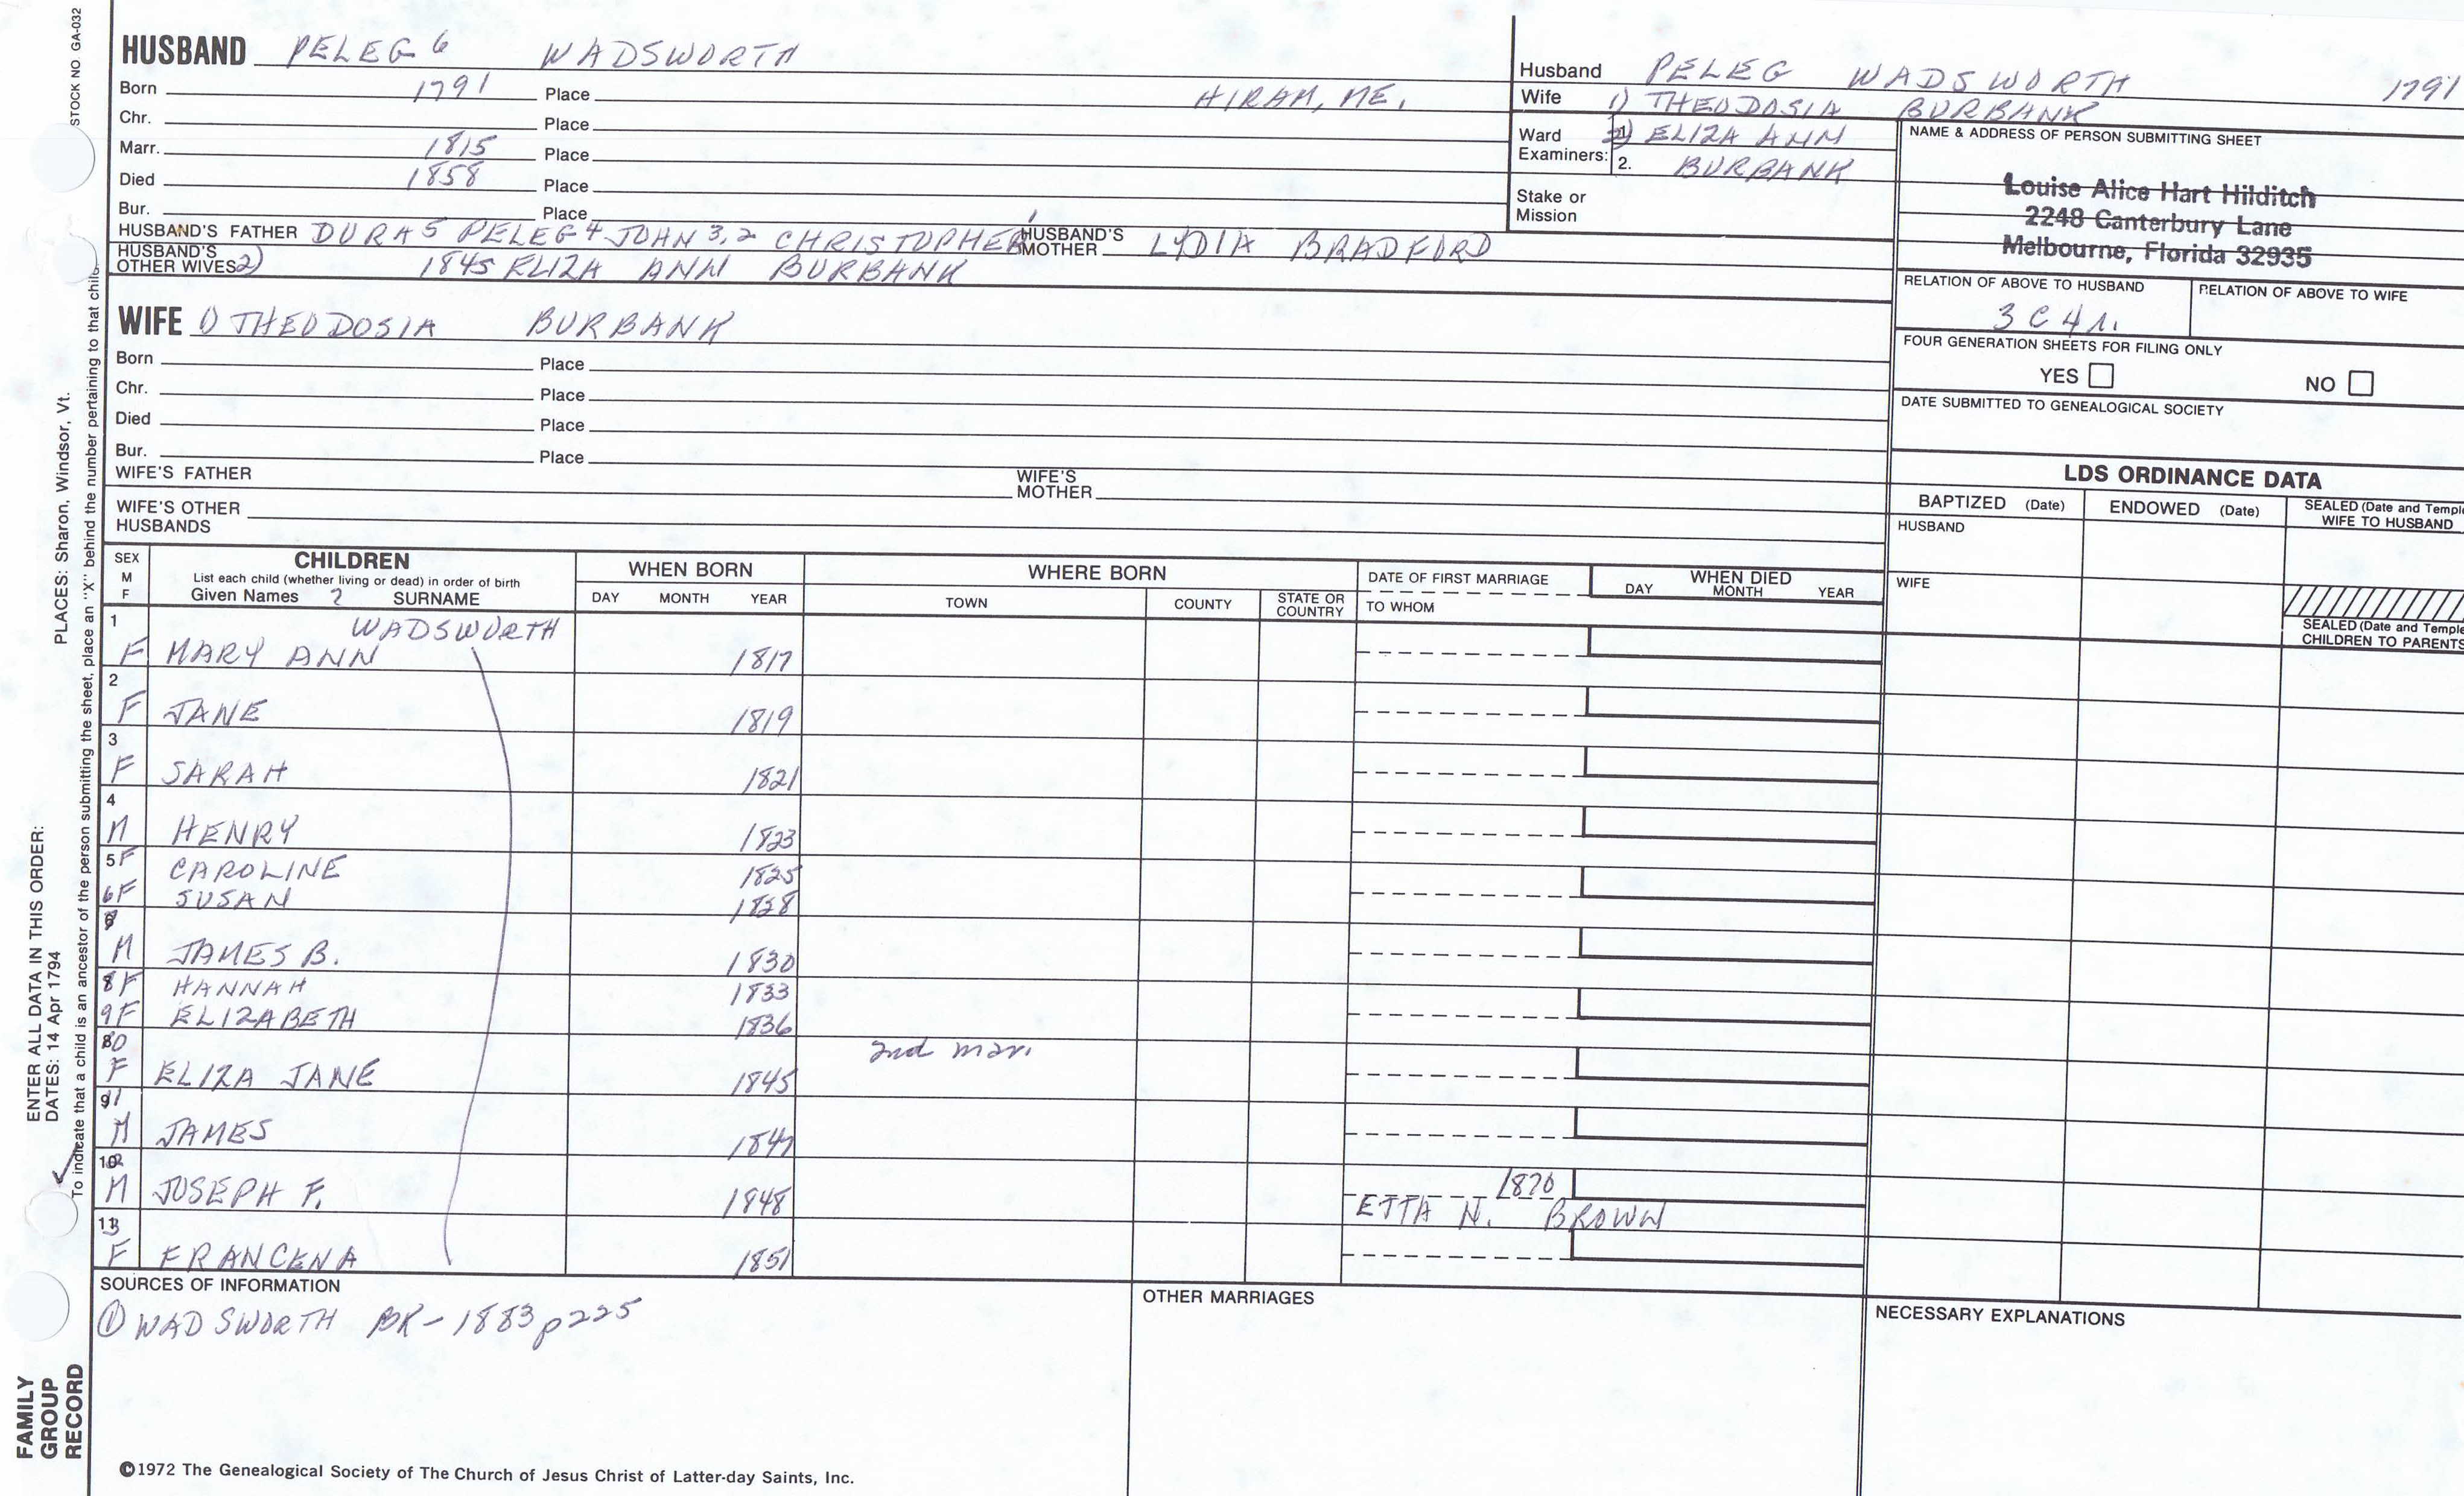 STOCK NO GA-032
PLACES: Sharon, Windsor, Vt.
ENTER ALL DATA IN THIS ORDER:
DATES: 14 Apr 1794
To indicate that a child is an ancestor of the person submitting the sheet, place an "X" behind the number pertaining to that child.
FAMILY
GROUP
RECORD
HUSBAND PELEG 6 WADSWORTH
Born 1791 Place HIRAM, ME.
Chr. Place
Marr. 1815 Place
Died 1858 Place
Bur. Place
HUSBAND'S FATHER DURA 5 PELEG 4 JOHN 3,2 CHRISTOPHER 1 HUSBAND'S MOTHER LYDIA BRADFORD
HUSBAND'S OTHER WIVES 2) 1845 ELIZA ANN BURBANK
WIFE 1) THEODOSIA BURBANK
Born Place
Chr. Place
Died Place
Bur. Place
WIFE'S FATHER WIFE'S MOTHER
WIFE'S OTHER HUSBANDS
Husband PELEG WADSWORTH 1791
Wife 1) THEODOSIA BURBANK
Ward Examiners: 1. 2) ELIZA ANN
2. BURBANK
Stake or Mission
NAME & ADDRESS OF PERSON SUBMITTING SHEET
Louise Alice Hart Hilditch
2248 Canterbury Lane
Melbourne, Florida 32935
RELATION OF ABOVE TO HUSBAND RELATION OF ABOVE TO WIFE
3 C 4 r.
FOUR GENERATION SHEETS FOR FILING ONLY
YES NO
DATE SUBMITTED TO GENEALOGICAL SOCIETY
LDS ORDINANCE DATA
BAPTIZED (Date) ENDOWED (Date) SEALED (Date and Temple) WIFE TO HUSBAND
HUSBAND
WIFE
SEALED (Date and Temple) CHILDREN TO PARENTS
SEX M F CHILDREN WHEN BORN WHERE BORN DATE OF FIRST MARRIAGE WHEN DIED
List each child (whether living or dead) in order of birth
Given Names ? SURNAME DAY MONTH YEAR TOWN COUNTY STATE OR COUNTRY TO WHOM DAY MONTH YEAR
1 WADSWORTH
F MARY ANN 1817
2
F JANE 1819
3
F SARAH 1821
4
M HENRY 1823
5 F CAROLINE 1825
6 F SUSAN 1828
7
M JAMES B. 1830
8 F HANNAH 1833
9 F ELIZABETH 1836
10 2nd mar.
F ELIZA JANE 1845
11
M JAMES 1847
12 1870
M JOSEPH F. 1848 ETTA N. BROWN
13
F FRANCENA 1851
SOURCES OF INFORMATION OTHER MARRIAGES NECESSARY EXPLANATIONS
① WADSWORTH BK - 1883 p225
©1972 The Genealogical Society of The Church of Jesus Christ of Latter-day Saints, Inc.